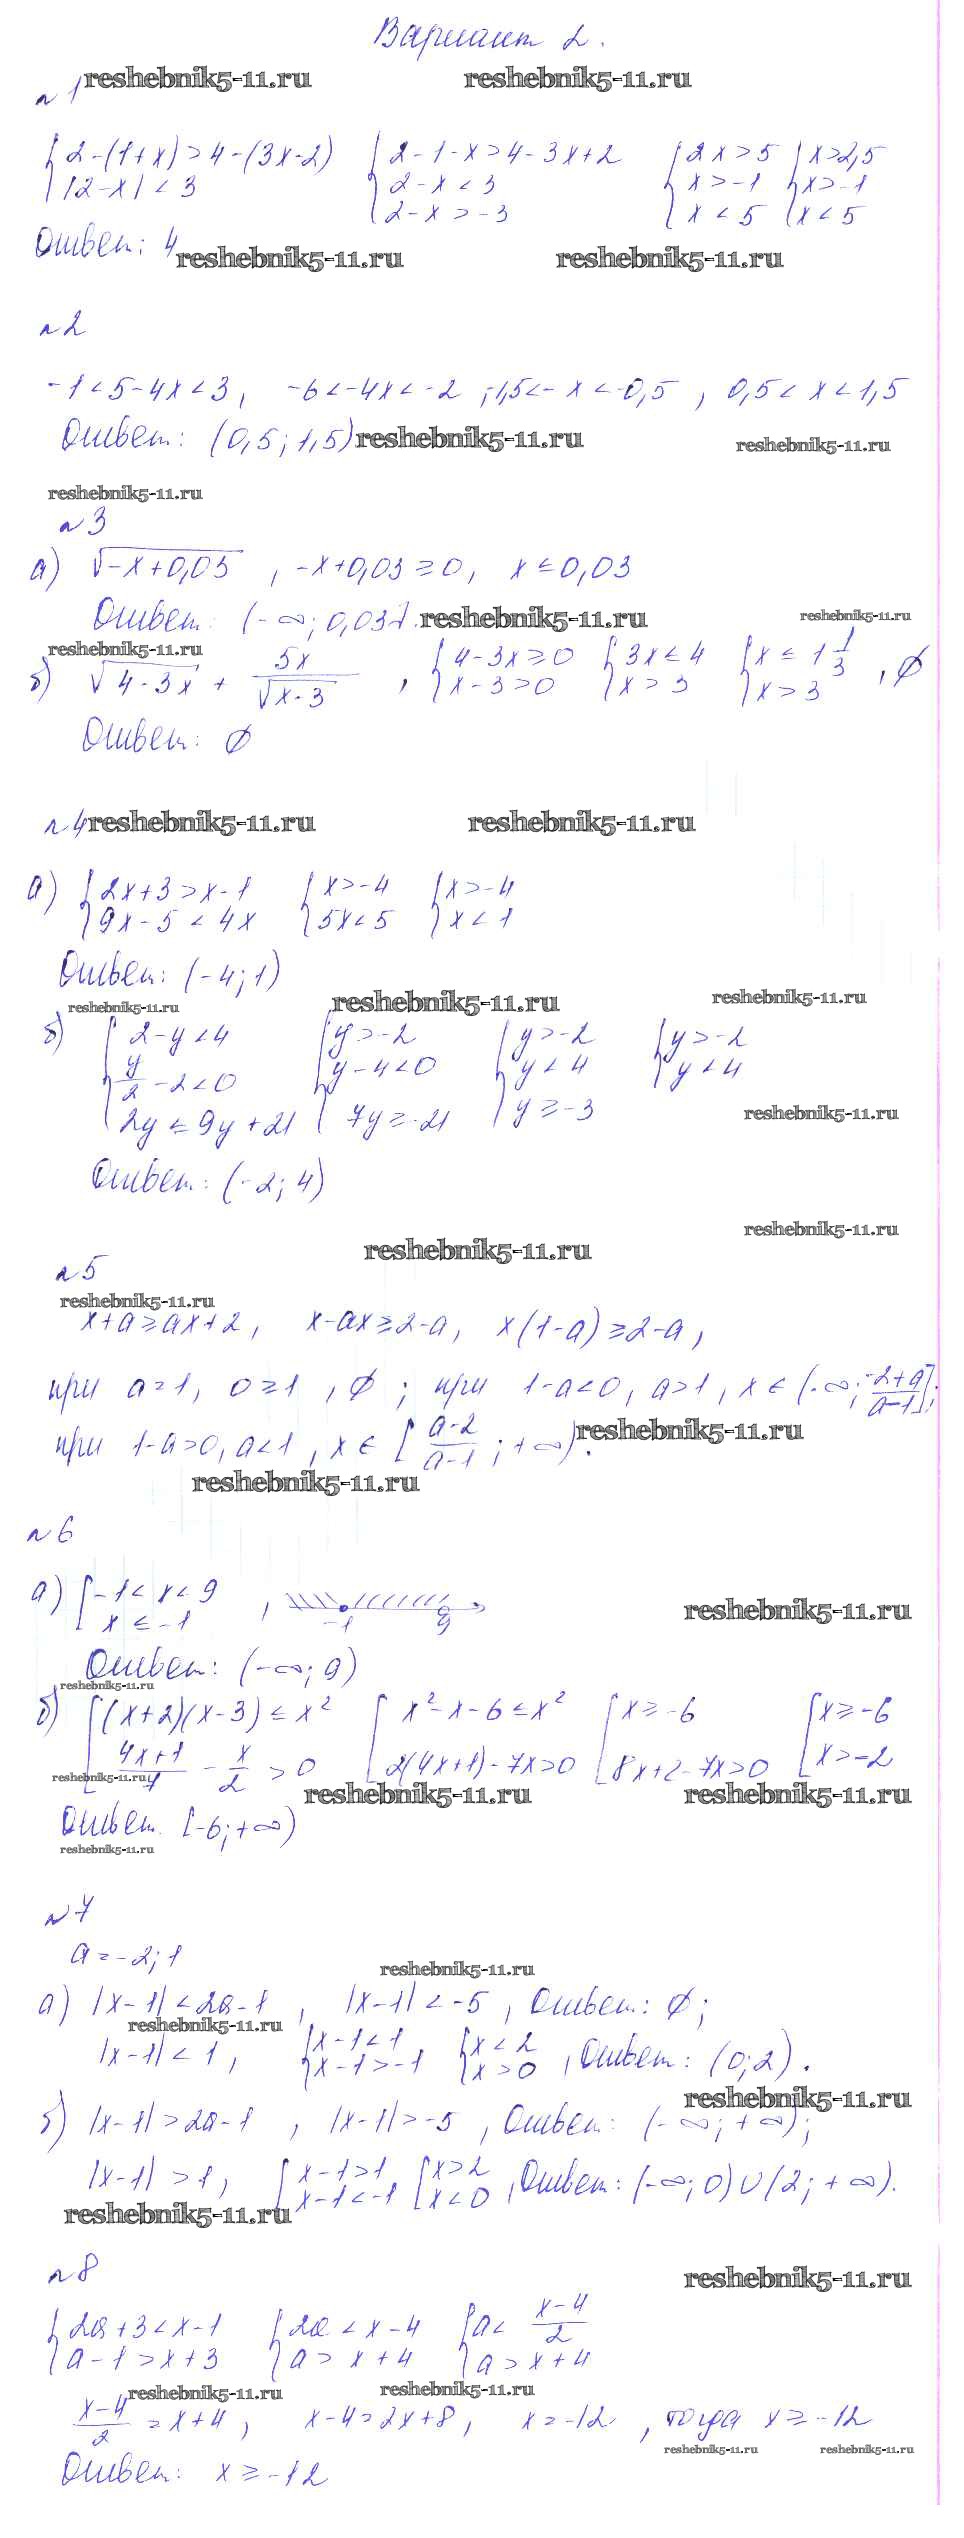 Вариант 2.
reshebnik5-11.ru reshebnik5-11.ru
№1
{2-(1+x)>4-(3x-2) {2-1-x>4-3x+2 {2x>5 {x>2,5
|2-x|<3 2-x<3 x>-1 x>-1
2-x>-3 x<5 x<5
Ответ: 4
reshebnik5-11.ru reshebnik5-11.ru
№2
-1<5-4x<3, -6<-4x<-2, -1,5<-x<-0,5, 0,5<x<1,5
Ответ: (0,5; 1,5) reshebnik5-11.ru reshebnik5-11.ru
reshebnik5-11.ru
№3
а) √(-x+0,03), -x+0,03≥0, x≤0,03
Ответ: (-∞; 0,03]. reshebnik5-11.ru reshebnik5-11.ru
reshebnik5-11.ru
б) √(4-3x) + 5x/√(x-3), {4-3x≥0 {3x≤4 {x≤1 1/3, ∅
x-3>0 x>3 x>3
Ответ: ∅
№4 reshebnik5-11.ru reshebnik5-11.ru
а) {2x+3>x-1 {x>-4 {x>-4
9x-5<4x 5x<5 x<1
Ответ: (-4; 1)
reshebnik5-11.ru reshebnik5-11.ru reshebnik5-11.ru
б) {2-y<4 {y>-2 {y>-2 {y>-2
y/2-2<0 y-4<0 y<4 y<4
2y≤9y+21 7y≥-21 y≥-3
reshebnik5-11.ru
Ответ: (-2; 4)
reshebnik5-11.ru
reshebnik5-11.ru
№5
reshebnik5-11.ru
x+a≥ax+2, x-ax≥2-a, x(1-a)≥2-a,
при a=1, 0≥1, ∅; при 1-a<0, a>1, x∈(-∞; (-2+a)/(a-1)];
при 1-a>0, a<1, x∈[(a-2)/(a-1); +∞). reshebnik5-11.ru
reshebnik5-11.ru
№6
а) [-1<x<9, -1 9
x≤-1
reshebnik5-11.ru
Ответ: (-∞; 9)
reshebnik5-11.ru
б) [(x+2)(x-3)≤x² [x²-x-6≤x² [x≥-6 [x≥-6
(4x+1)/7 - x/2>0 2(4x+1)-7x>0 8x+2-7x>0 x>-2
reshebnik5-11.ru reshebnik5-11.ru reshebnik5-11.ru
Ответ. [-6; +∞)
reshebnik5-11.ru
№7
a=-2; 1
reshebnik5-11.ru
а) |x-1|<2a-1, |x-1|<-5, Ответ: ∅;
reshebnik5-11.ru
|x-1|<1, {x-1<1 {x<2, Ответ: (0; 2).
x-1>-1 x>0
reshebnik5-11.ru
б) |x-1|>2a-1, |x-1|>-5, Ответ: (-∞; +∞);
|x-1|>1, [x-1>1 [x>2, Ответ: (-∞; 0)∪(2; +∞).
x-1<-1 x<0
reshebnik5-11.ru
№8
reshebnik5-11.ru
{2a+3<x-1 {2a<x-4 {a<(x-4)/2
a-1>x+3 a>x+4 a>x+4
reshebnik5-11.ru reshebnik5-11.ru
(x-4)/2=x+4, x-4=2x+8, x=-12, тогда x≥-12
reshebnik5-11.ru reshebnik5-11.ru
Ответ: x≥-12